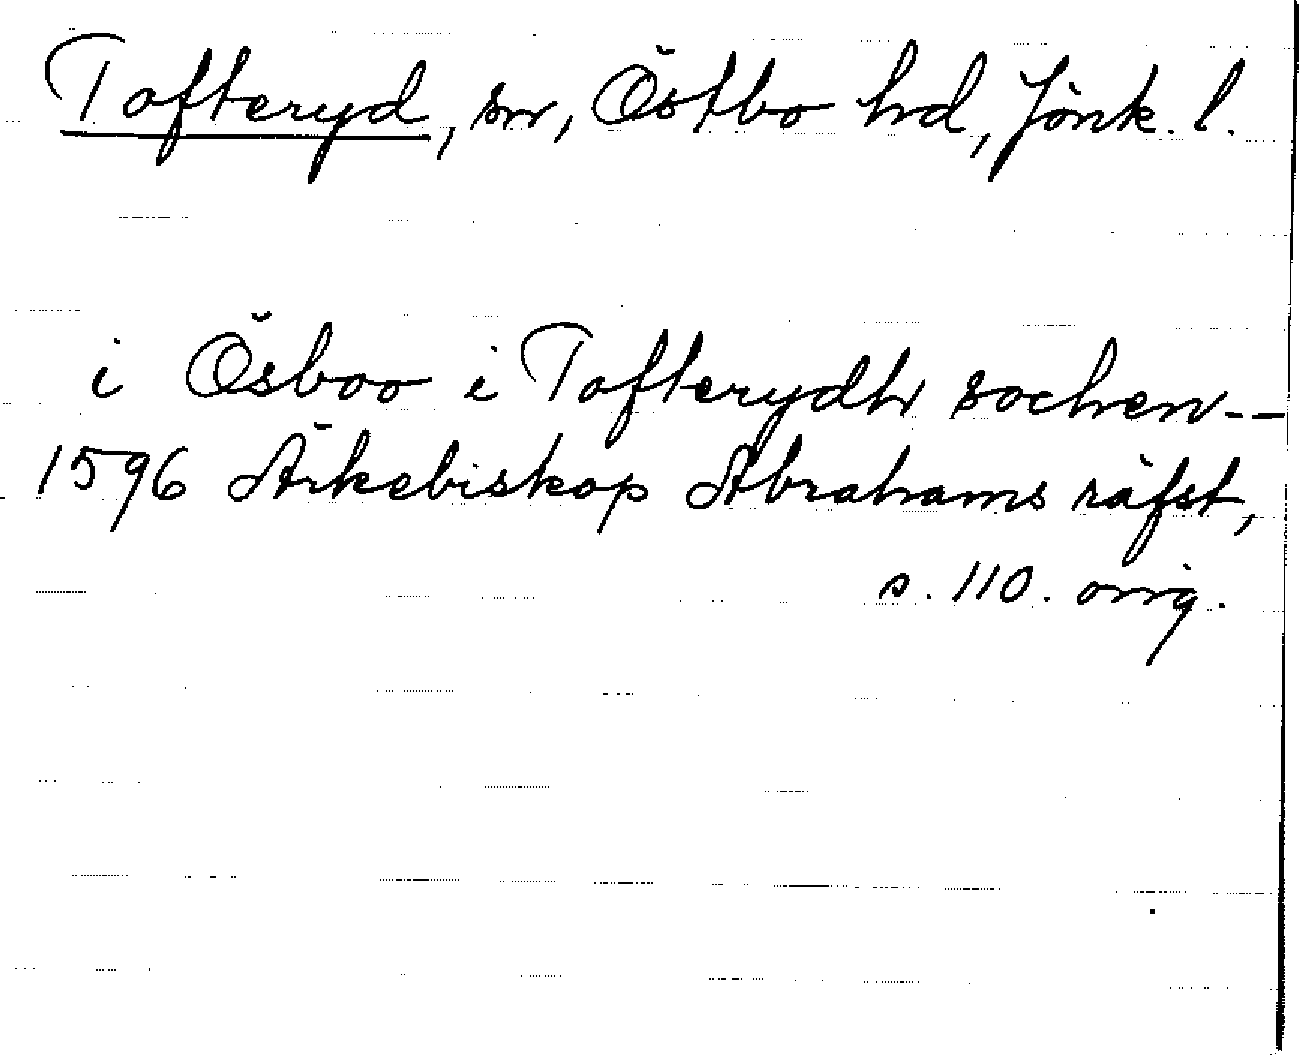 Tofteryd, sn, Östbo hd, Jönk. l.
i Ösboo i Tofterydh sochen--
1596 Ärkebiskop Abrahams räfst,
s. 110. orig.